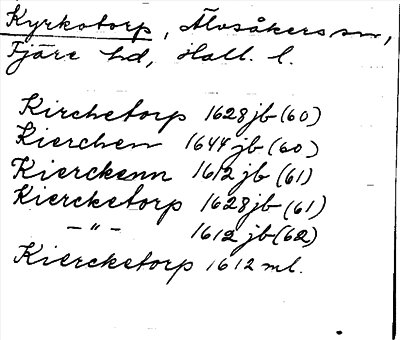 Kyrkotorp, Älvsåkers sn,
Fjäre hd, Hall. l.
Kirchetorp 1628 jb (60)
Kierchen 1644 jb (60)
Kierckenn 1612 jb (61)
Kiercketorp 1628 jb (61)
— " — 1612 jb (62)
Kiercketorp 1612 ml.